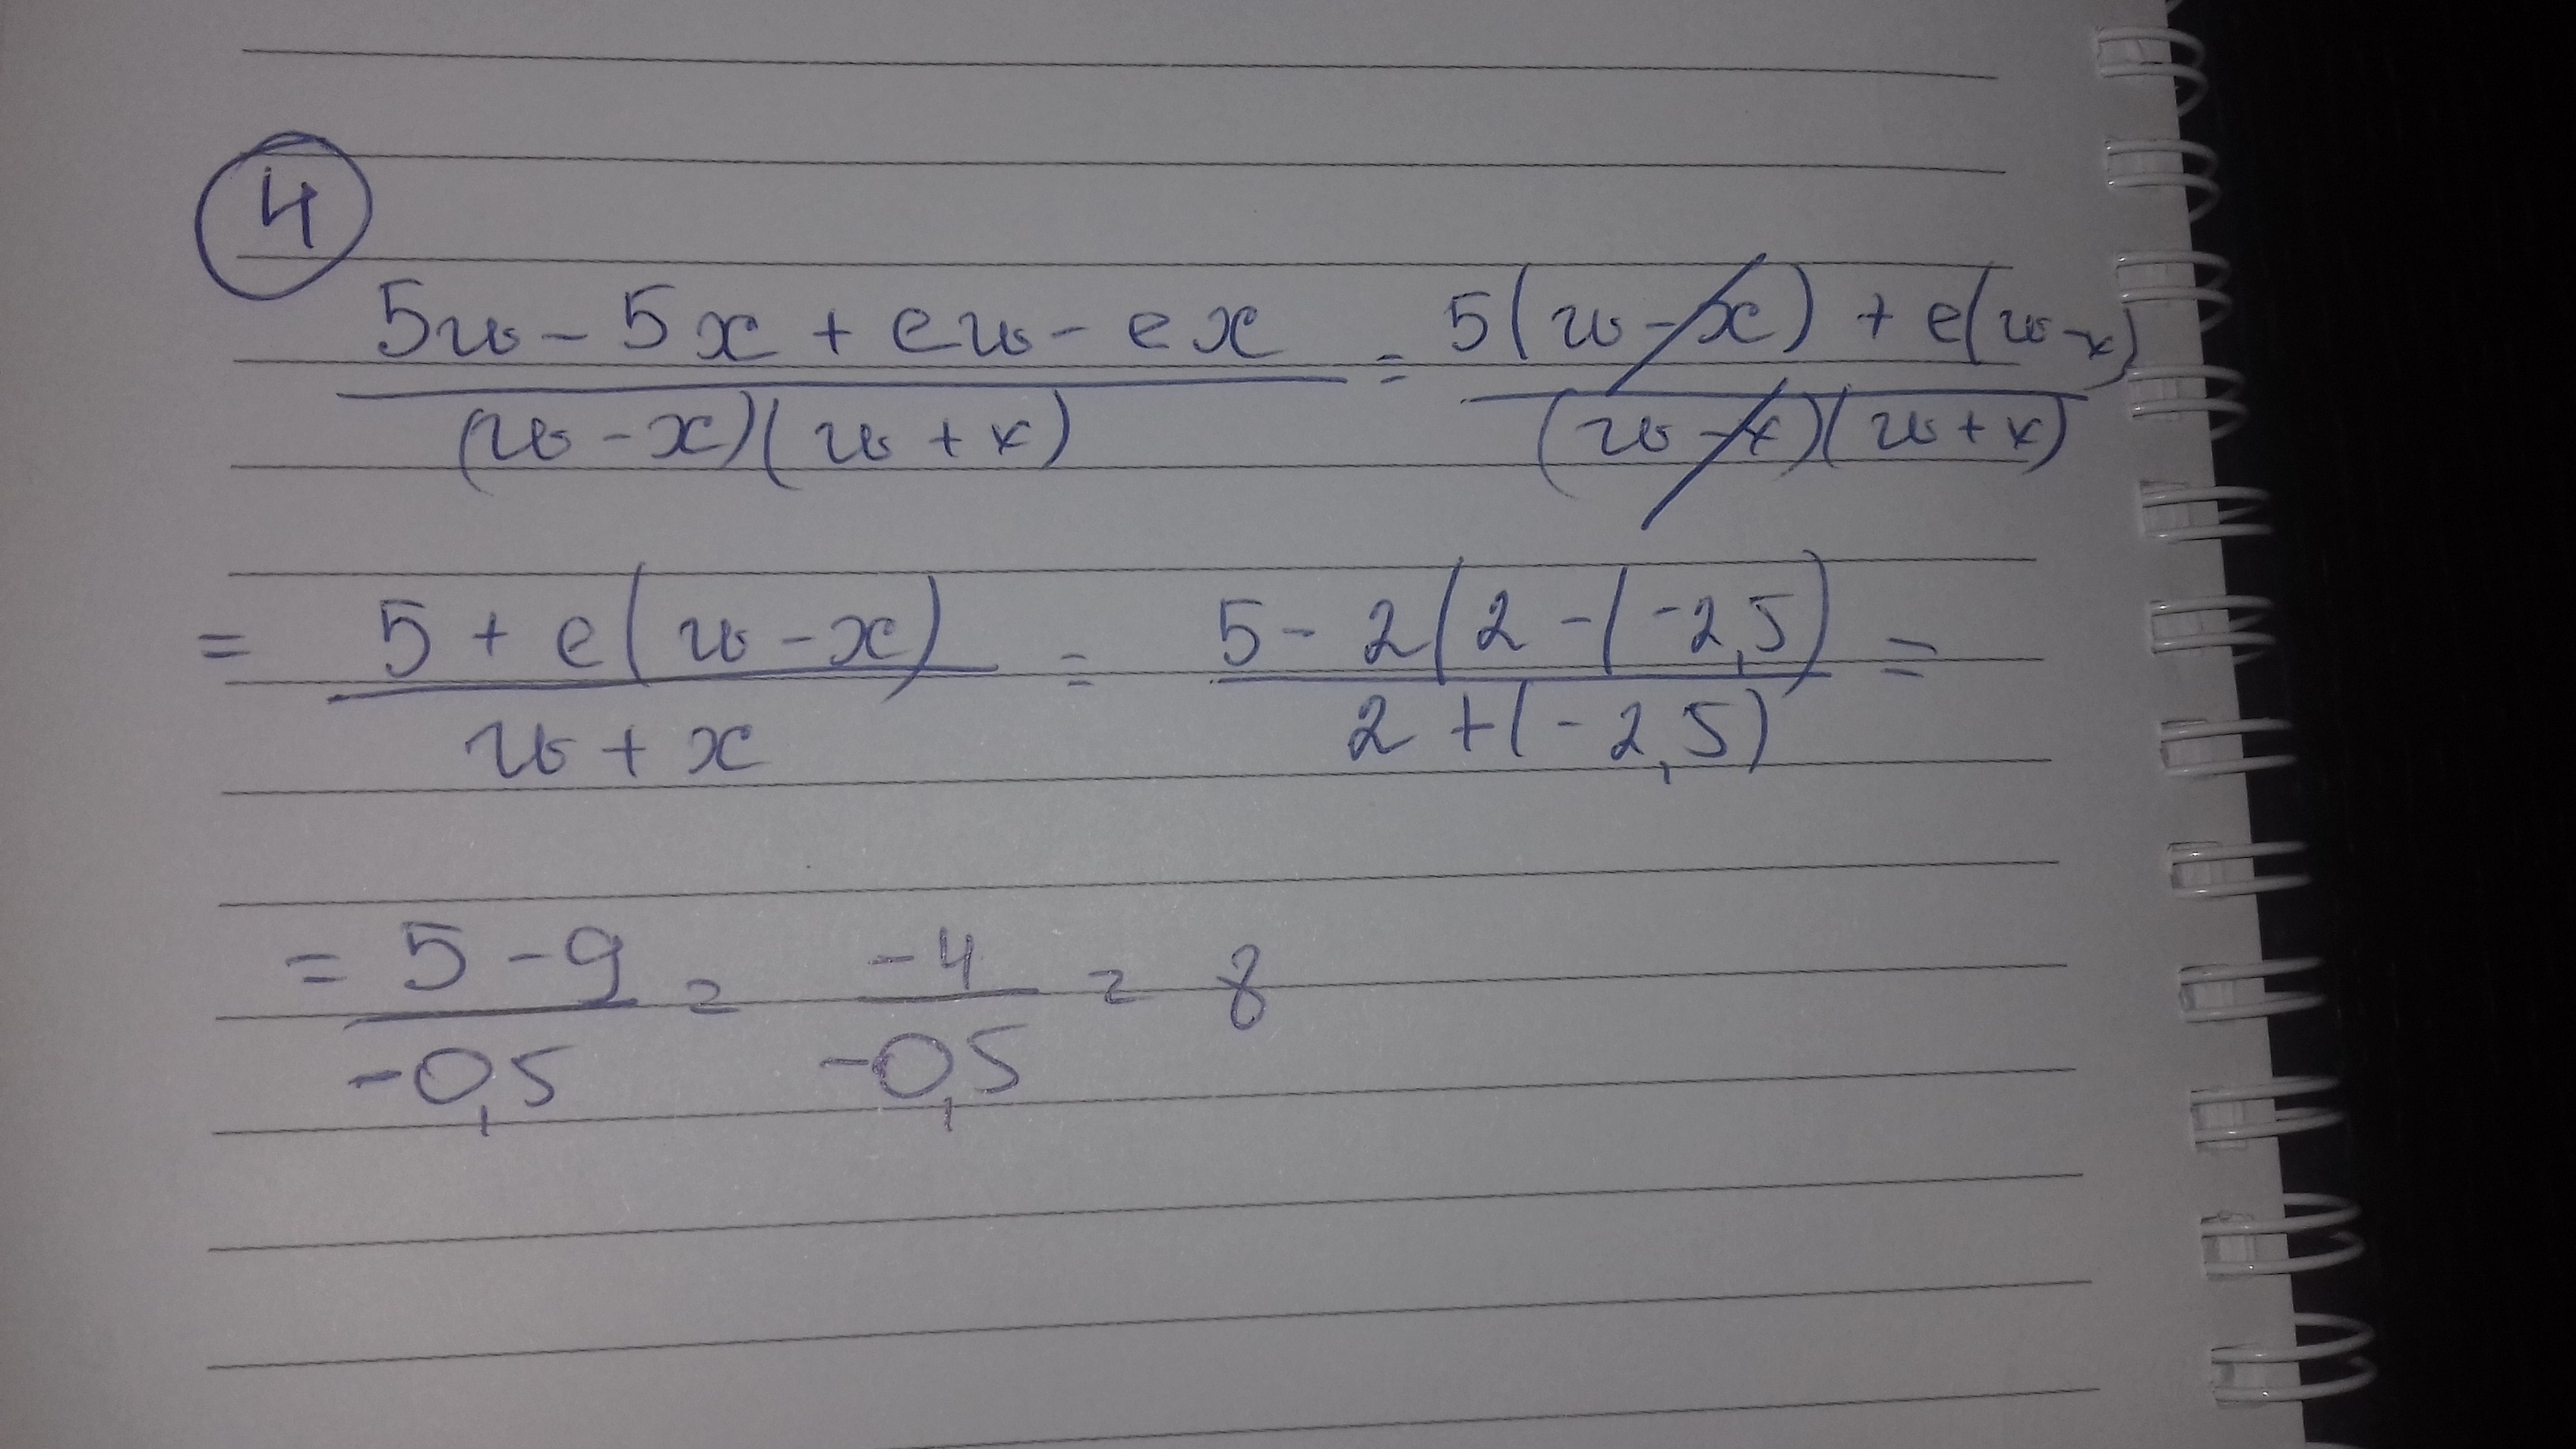 4
5w - 5x + ew - ex / (w - x)(w + x) = 5(w - x) + e(w - x) / (w - x)(w + x)
= 5 + e(w - x) / w + x = 5 - 2(2 - (-2,5) / 2 + (-2,5) =
= 5 - 9 / -0,5 = -4 / -0,5 = 8